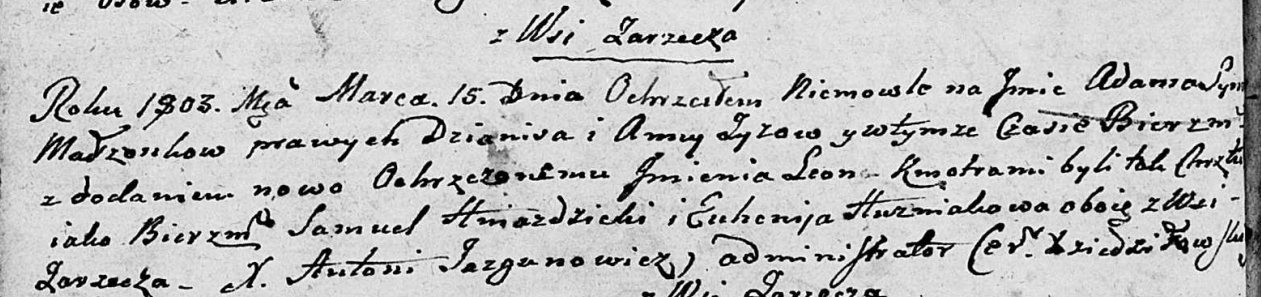 z Wsi Zarzecza
Roku 1803. Mca Marca. 15. Dnia Ochrzciłem Niemowle na Jmie Adama Syn
Małzonkow prawych Dzianisa i Anny Zyzow y wtymze Czasie Bierzm
z dodaniem nowo Ochrzczonemu Jmienia Leon - Kmotrami byli tak Chrztu
iako Bierzm Samuel Hniazdzicki i Euhenija Huzniakowa oboie z Wsi -
Zarzecza - X. Antoni Jazgunowicz, administrator Cer.
z Wsi Zarzecza